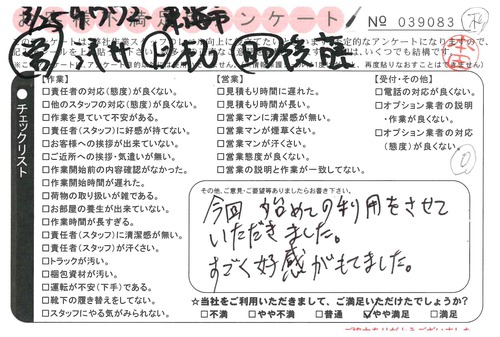 お客様満足度アンケート
№ 039083
3/25
東海市
【作業】
□責任者の対応(態度)が良くない。
□他のスタッフの対応(態度)が良くない。
□作業を見ていて不安がある。
□責任者(スタッフ)に好感が持てない。
□お客様への挨拶が出来ていない。
□ご近所への挨拶・気遣いが無い。
□作業開始前の内容確認がなかった。
□作業開始時間が遅れた。
□荷物の取り扱いが雑である。
□お部屋の養生が出来ていない。
□作業時間が長すぎる。
□責任者(スタッフ)に清潔感が無い。
□責任者(スタッフ)が汗くさい。
□トラックが汚い。
□梱包資材が汚い。
□運転が不安(下手)である。
□靴下の履き替えをしてない。
□スタッフにやる気がみられない。
【営業】
□見積もり時間に遅れた。
□見積もり時間が長い。
□営業マンに清潔感が無い。
□営業マンが煙草くさい。
□営業マンが汗くさい。
□営業態度が良くない。
□営業の説明と作業が一致してない。
【受付・その他】
□電話の対応が良くない。
□オプション業者の説明
・作業が良くない。
□オプション業者の対応
(態度)が良くない。
チェックリスト
その他、ご意見・ご要望等ありましたらお書き下さい。
今回 始めての利用をさせて
いただきました。
すごく好感がもてました。
☆当社をご利用いただきまして、ご満足いただけたでしょうか?
□不満 □やや不満 □普通 ☑やや満足 □満足
ご協力ありがとうございました